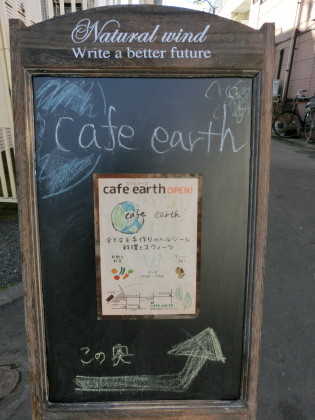 Natural wind
Write a better future
cafe earth
cafe earth OPEN!
cafe earth
全て店主手作りのヘルシーな
料理とスウィーツ
cafe earth
この奥